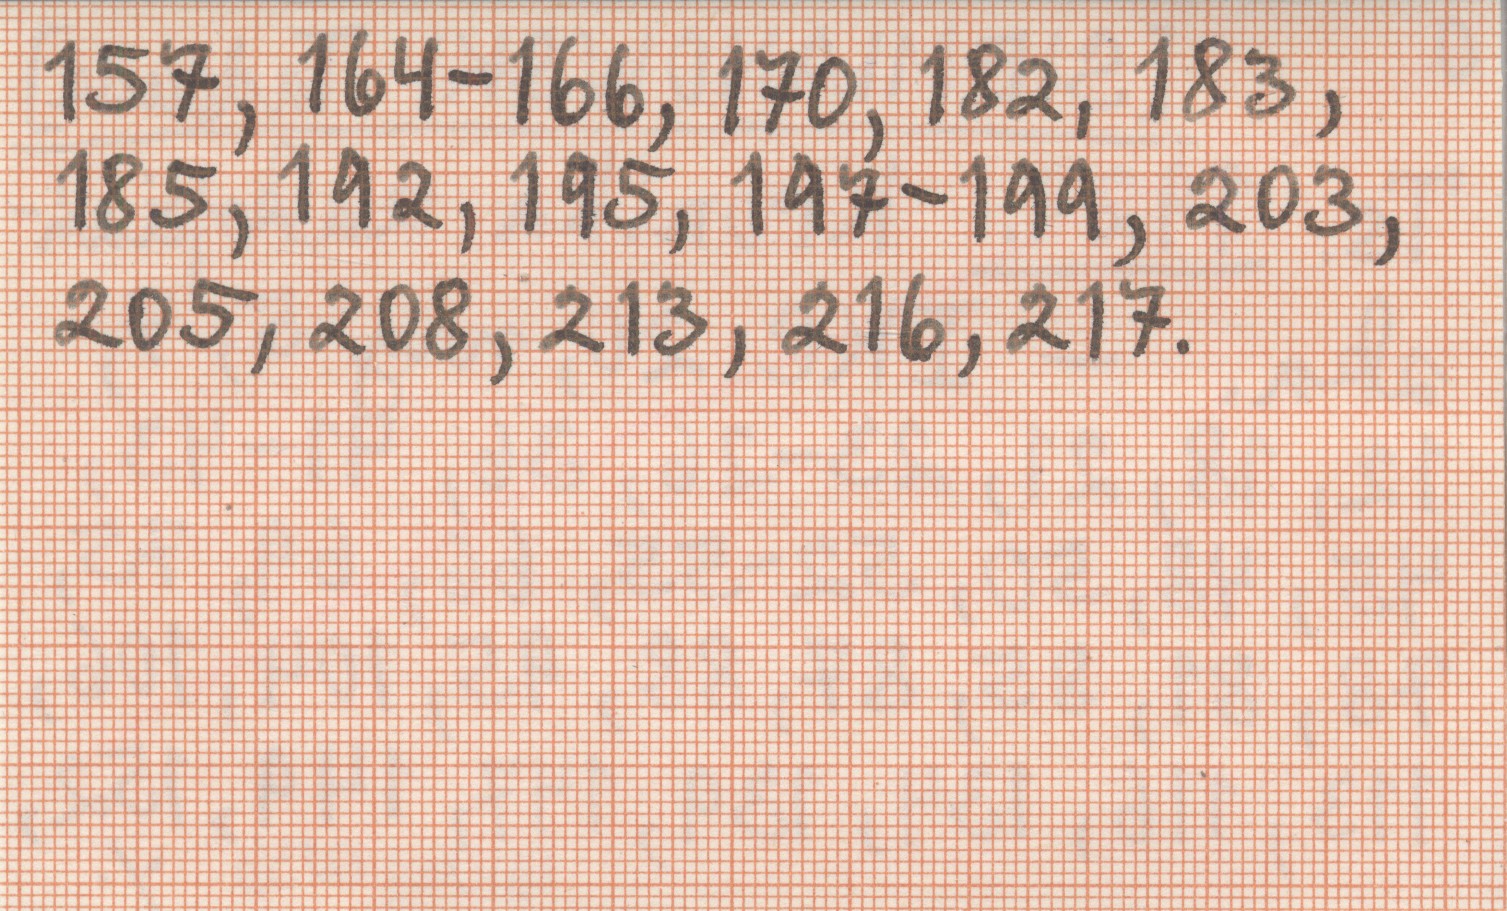 157, 164-166, 170, 182, 183,
185, 192, 195, 197-199, 203,
205, 208, 213, 216, 217.